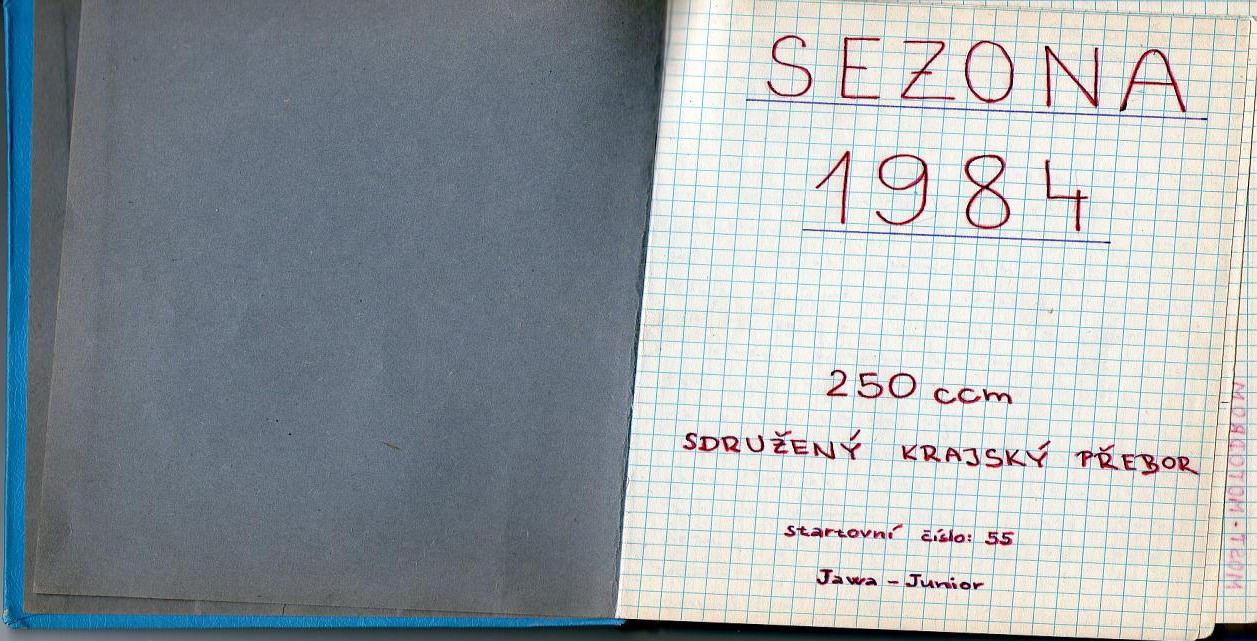 SEZONA
1984
250 ccm
SDRUŽENÝ KRAJSKÝ PŘEBOR
startovní číslo: 55
Jawa - Junior